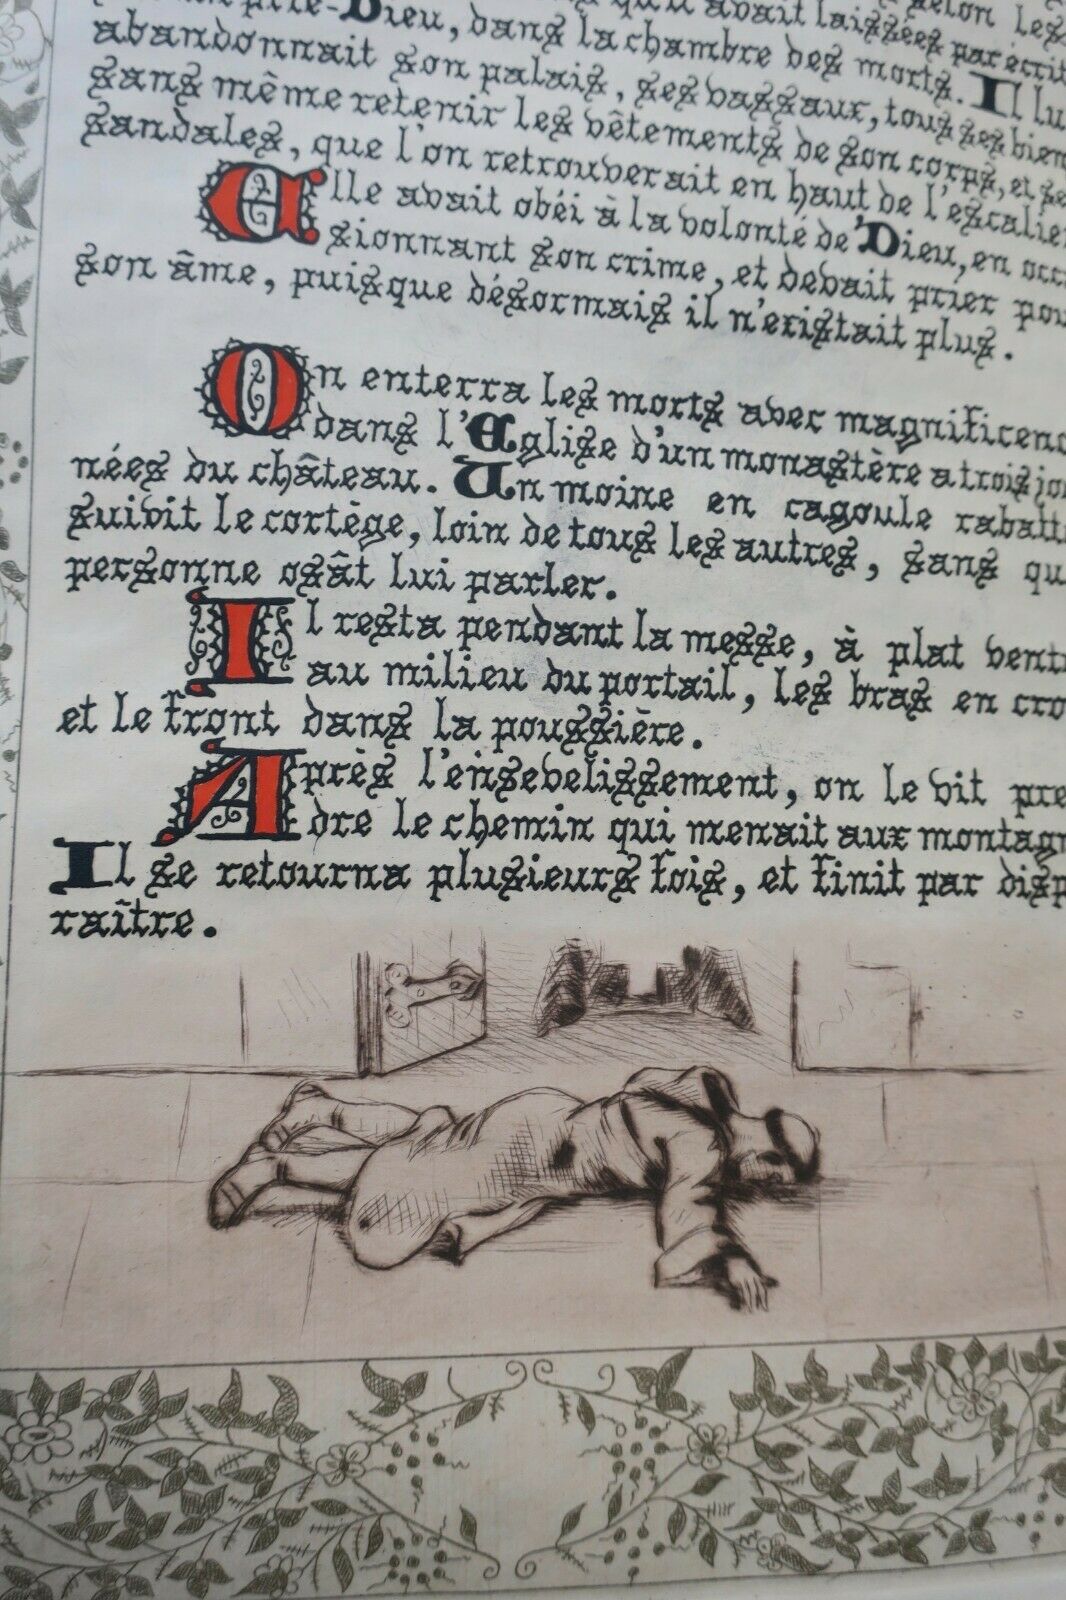 prie-Dieu, dans la chambre des morts. Il lu
qu'il avait laissées par écrit
abandonnait son palais, ses vassaux, tous ses bien
sans même retenir les vêtements de son corps, et se
sandales, que l'on retrouverait en haut de l'escalier
Elle avait obéi à la volonté de Dieu, en occa
sionnant son crime, et devait prier pou
son âme, puisque désormais il n'existait plus.
On enterra les morts avec magnificenc
dans l'Eglise d'un monastère a trois jou
nées du château. Un moine en cagoule rabatt
suivit le cortège, loin de tous les autres, sans qu
personne osât lui parler.
Il resta pendant la messe, à plat ventr
au milieu du portail, les bras en cro
et le front dans la poussière.
Après l'ensevelissement, on le vit pre
dre le chemin qui menait aux montagn
Il se retourna plusieurs fois, et finit par disp
raître.